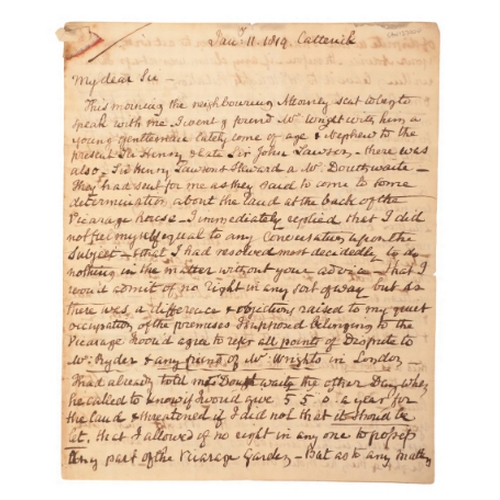 Jany 11 1819 Catterick
My dear Sir —
This morning the neighbouring Attorney sent to beg to
speak with me I went & found Mr Wright with him, a
young gentleman lately come of age & Nephew to the
present Sir Henry & late Sir John Lawson — there was
also — Sir Henry Lawsons Steward a Mr. Douthwaite —
They had sent for me as they said to come to some
determination about the land at the back of the
Vicarage House — I immediately replied that I did
not feel myself equal to any Conversation upon the
Subject — & that I had resolved most decidedly to do
nothing in the matter without your advice — that I
would admit of no right in any sort of way but as
there was a difference & objections raised to my quiet
occupation of the premises I supposed belonging to the
Vicarage I would agree to refer all points of Dispute to
Mr. Ryder & any friend of Mr. Wrights in London —
I had already told Mr Douthwaite the other Day when
he called to know if I would give 5 5 0 a year for
the land & threatened if I did not that it should be
let, that I allowed of no right in any one to possess
any part of the Vicarage Garden — But as to any matter